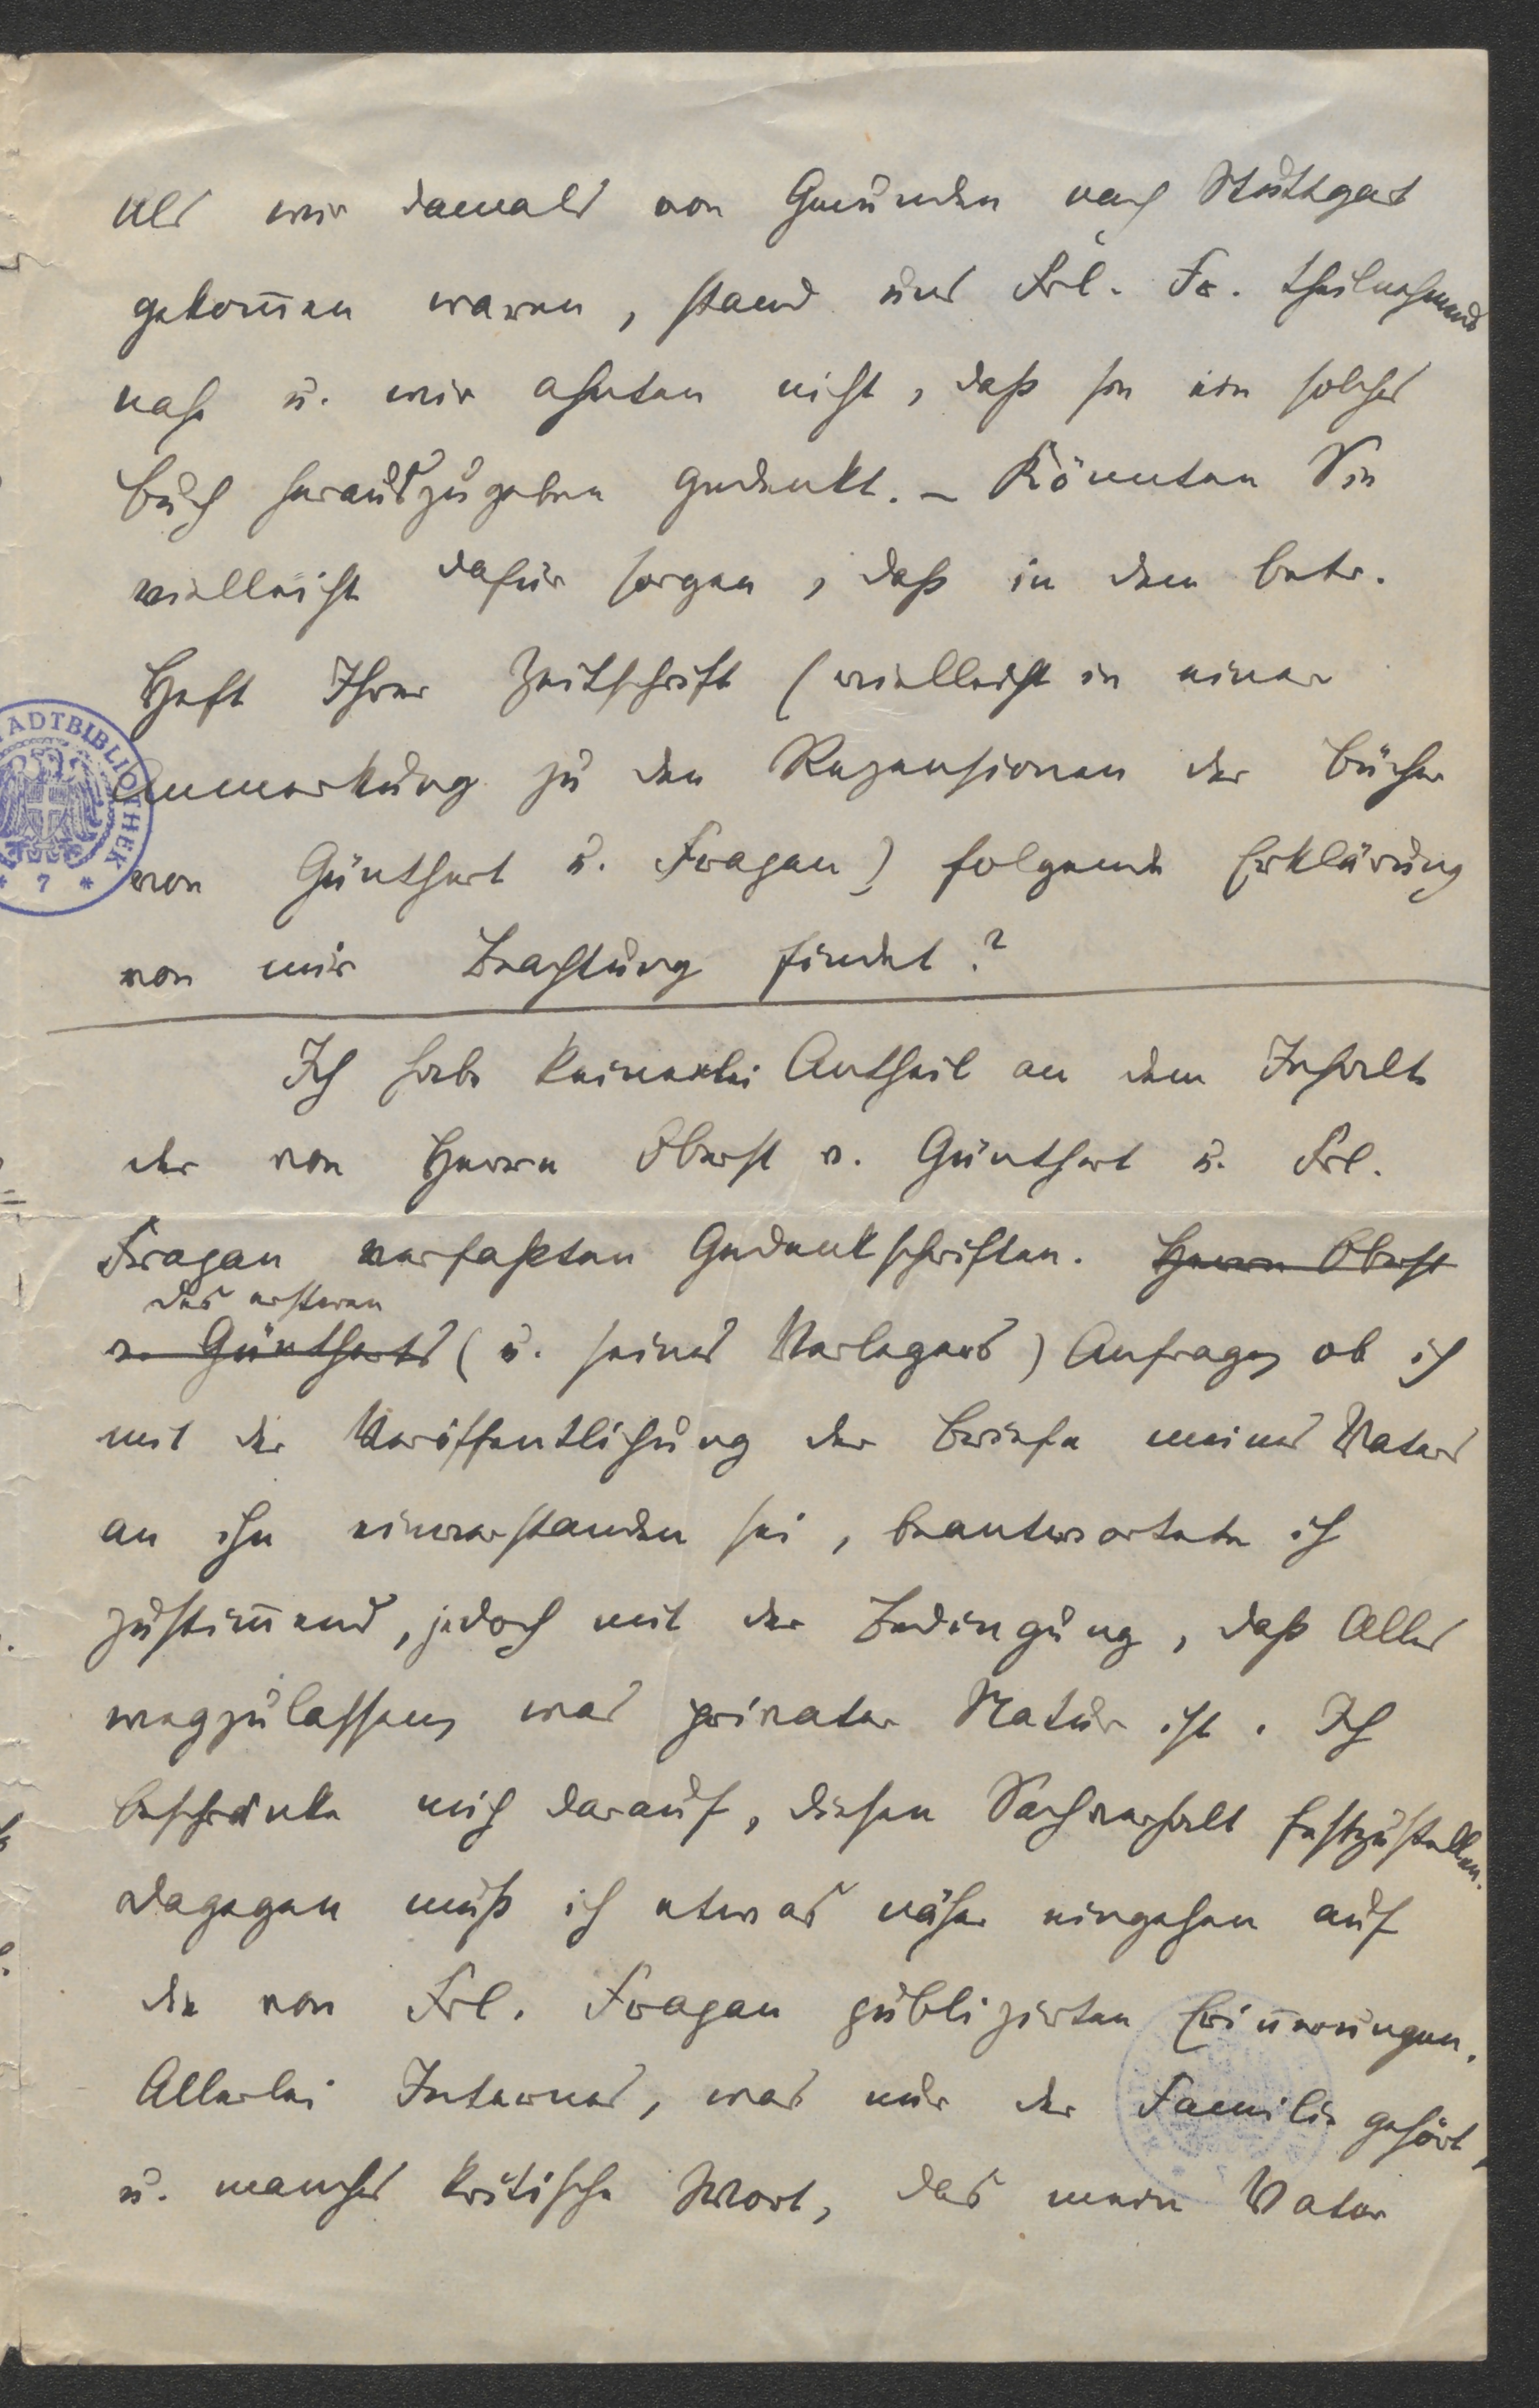 Als wir damals von Gmunden nach Stuttgart
gekom̄en waren, stand uns Frl. Fr. theilnehmend
nahe u. wir ahnten nicht, daß sie ein solches
Buch herauszugeben gedenkt. – Könnten Sie
vielleicht dafür sorgen, daß in dem betr.
Heft Ihrer Zeitschrift (vielleicht in einer
Anmerkung zu den Rezensionen der Bücher
von Günthert u. Frapan) folgende Erklärung
von mir Beachtung findet?
Ich habe keinerlei Antheil an dem Inhalte
der von Herrn Oberst v. Günthert u. Frl.
Frapan verfaßten Gedenkschriften. Herrn Oberst
des ersteren
v. Güntherts (u. seines Verlegers) Anfrage, ob ich
mit der Veröffentlichung der Briefe meines Vaters
an ihn einverstanden sei, beantwortete ich
zustim̄end, jedoch mit der Bedingung, daß Alles
wegzulassen, was privater Natur ist. Ich
beschränke mich darauf, diesen Sachverhalt festzustellen.
Dagegen muß ich etwas näher eingehen auf
die von Frl. Frapan publizirten Erin̄erungen.
Allerlei Internes, was nur der Familie gehört,
u. manches kritische Wort, das mein Vater
STADTBIBLIOTHEK
* 7 *